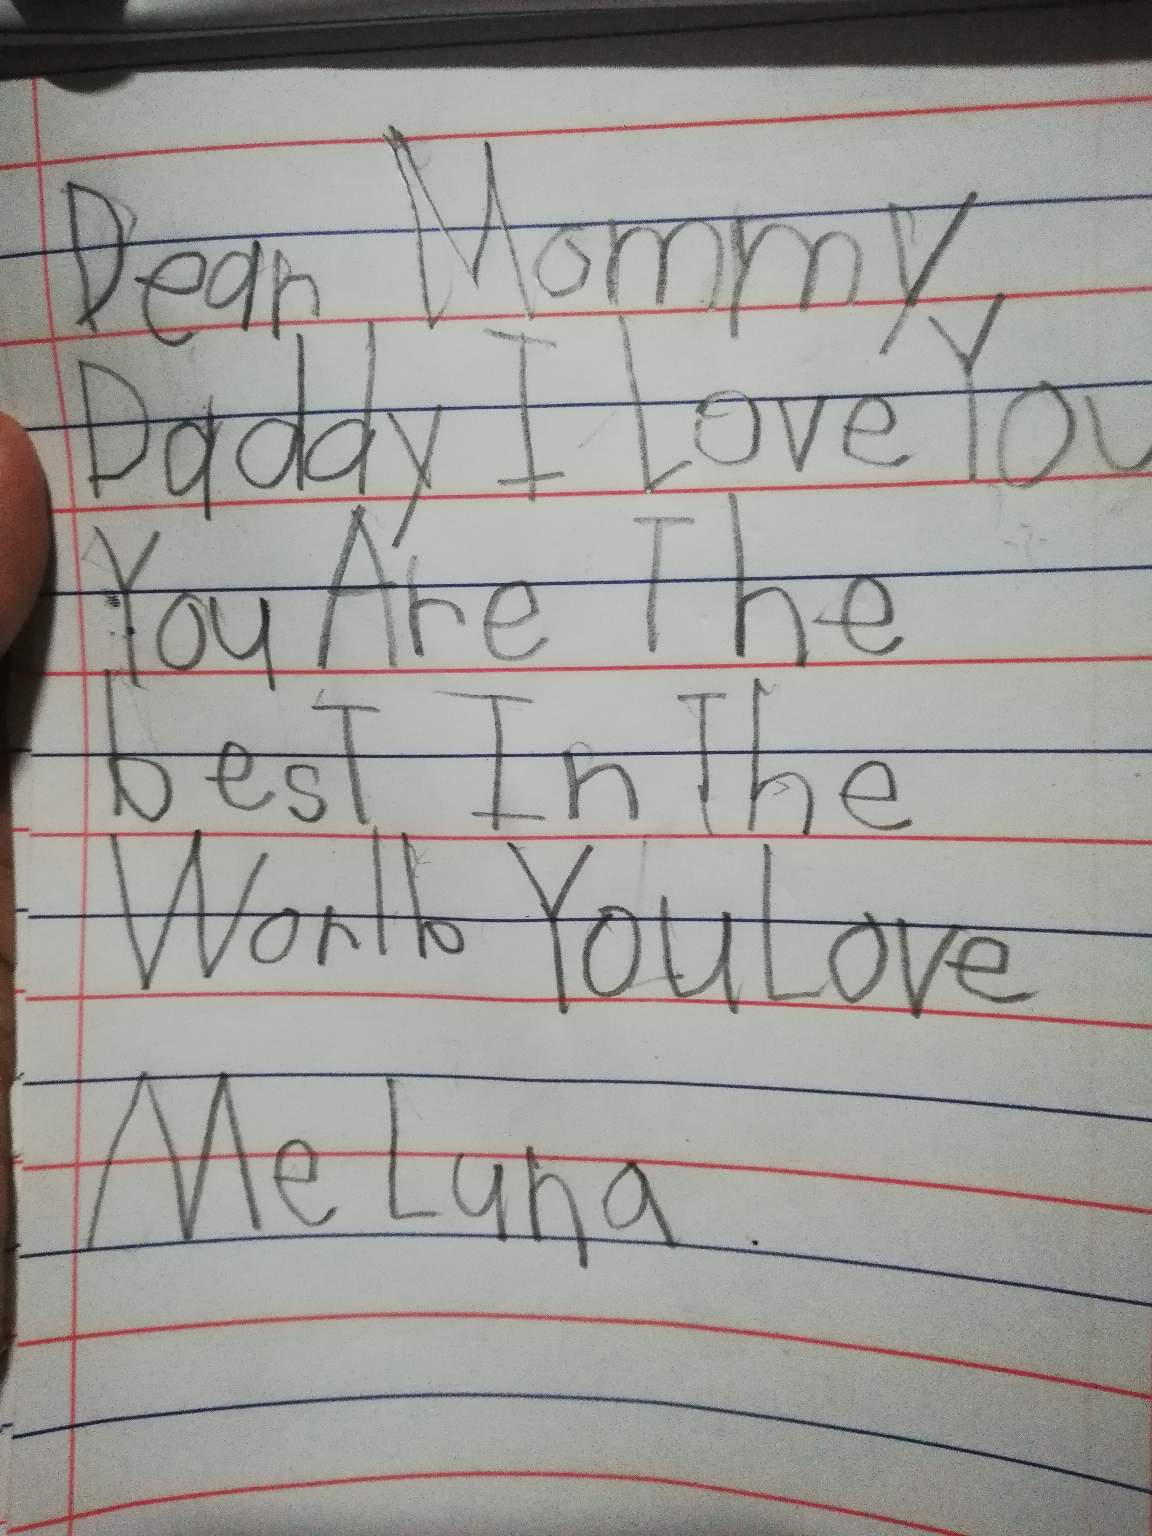 Dear Mommy
Daddy I Love You
You Are The
best In The
Worlb You Love
Me Luna